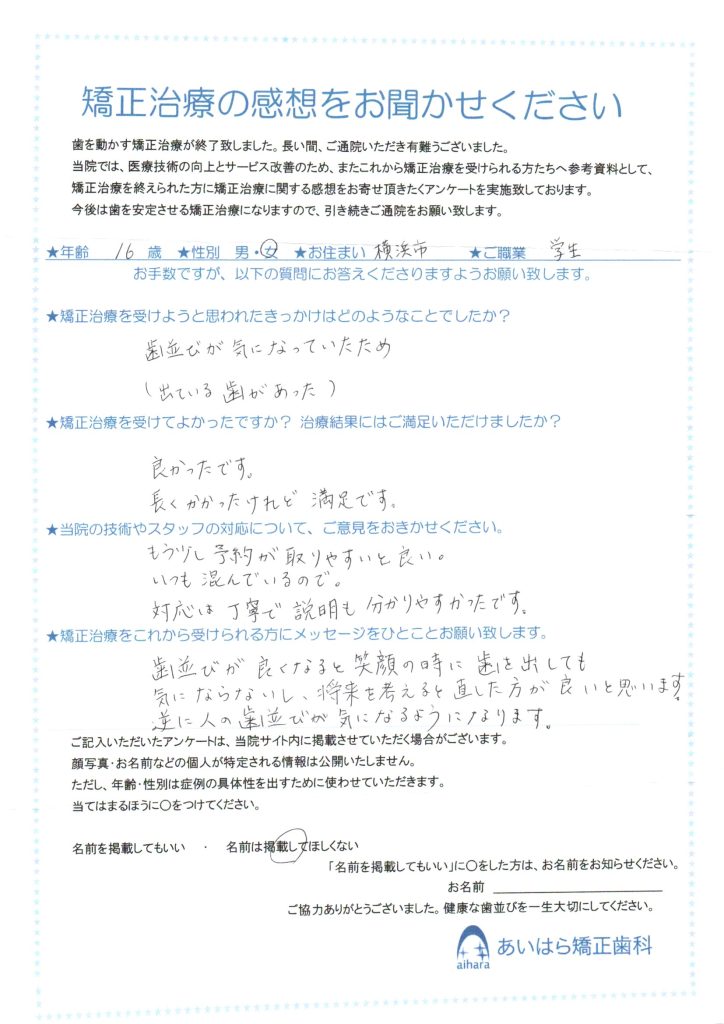 矯正治療の感想をお聞かせください
歯を動かす矯正治療が終了致しました。長い間、ご通院いただき有難うございました。
当院では、医療技術の向上とサービス改善のため、またこれから矯正治療を受けられる方たちへ参考資料として、
矯正治療を終えられた方に矯正治療に関する感想をお寄せ頂きたくアンケートを実施致しております。
今後は歯を安定させる矯正治療になりますので、引き続きご通院をお願い致します。
★年齢 16 歳 ★性別 男・女 ★お住まい 横浜市 ★ご職業 学生
お手数ですが、以下の質問にお答えくださりますようお願い致します。
★矯正治療を受けようと思われたきっかけはどのようなことでしたか？
歯並びが気になっていたため
(出ている歯があった)
★矯正治療を受けてよかったですか？ 治療結果にはご満足いただけましたか？
良かったです。
長くかかったけれど満足です。
★当院の技術やスタッフの対応について、ご意見をおきかせください。
もう少し予約が取りやすいと良い。
いつも混んでいるので。
対応は丁寧で説明も分かりやすかったです。
★矯正治療をこれから受けられる方にメッセージをひとことお願い致します。
歯並びが良くなると笑顔の時に歯を出しても
気にならないし、将来を考えると直した方が良いと思います。
逆に人の歯並びが気になるようになります。
ご記入いただいたアンケートは、当院サイト内に掲載させていただく場合がございます。
顔写真・お名前などの個人が特定される情報は公開いたしません。
ただし、年齢・性別は症例の具体性を出すために使わせていただきます。
当てはまるほうに○をつけてください。
名前を掲載してもいい ・ 名前は掲載してほしくない
「名前を掲載してもいい」に○をした方は、お名前をお知らせください。
お名前
ご協力ありがとうございました。健康な歯並びを一生大切にしてください。
aihara あいはら矯正歯科